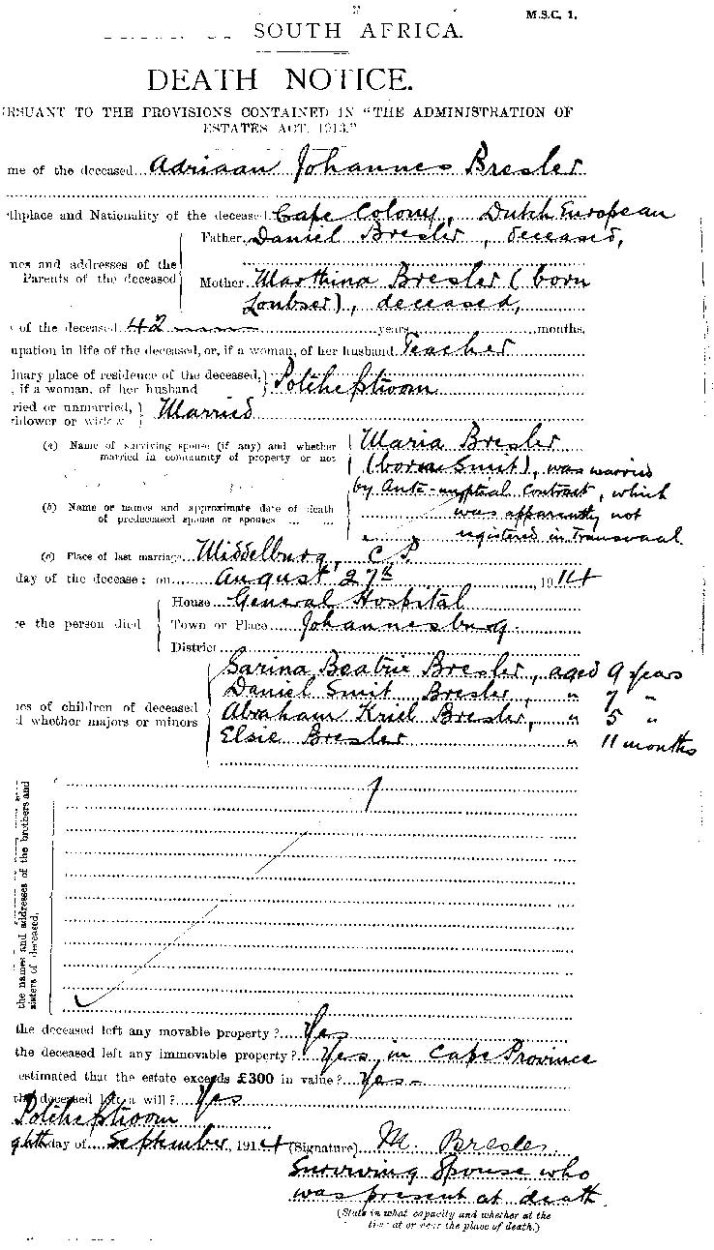 M.S.C. 1.
SOUTH AFRICA.
DEATH NOTICE.
RSUANT TO THE PROVISIONS CONTAINED IN "THE ADMINISTRATION OF
ESTATES ACT, 1913."
me of the deceased Adriaan Johannes Bresler
thplace and Nationality of the deceased Cape Colony, Dutch European
Father Daniel Bresler, deceased,
nes and addresses of the
Parents of the deceased
Mother Marthina Bresler (born
Loubser), deceased,
of the deceased 42 years months.
upation in life of the deceased, or, if a woman, of her husband Teacher
inary place of residence of the deceased,
, if a woman, of her husband
Potchefstroom
ried or unmarried,
idower or widow
Married
(a) Name of surviving spouse (if any) and whether
married in community of property or not
Maria Bresler
(born Smit), was married
by Ante-nuptial Contract, which
was apparently not
registered in Transvaal.
(b) Name or names and approximate date of death
of predeceased spouse or spouses
(c) Place of last marriage Middelburg, C.P.
day of the decease: on August 27th, 1914
House General Hospital
re the person died Town or Place Johannesburg.
District
Sarina Beatrix Bresler, aged 9 years
Daniel Smit Bresler, " 7 "
es of children of deceased
d whether majors or minors
Abraham Kriel Bresler, " 5 "
Elsie Bresler " 11 months
the names and addresses of the brothers and
sisters of deceased.
the deceased left any movable property? Yes
the deceased left any immovable property? Yes, in Cape Province
estimated that the estate exceeds £300 in value? Yes
the deceased left a will? Yes
Potchefstroom
day of September, 1914 (Signature) M. Bresler,
Surviving Spouse who
was present at death
(State in what capacity and whether at the
time at or near the place of death.)